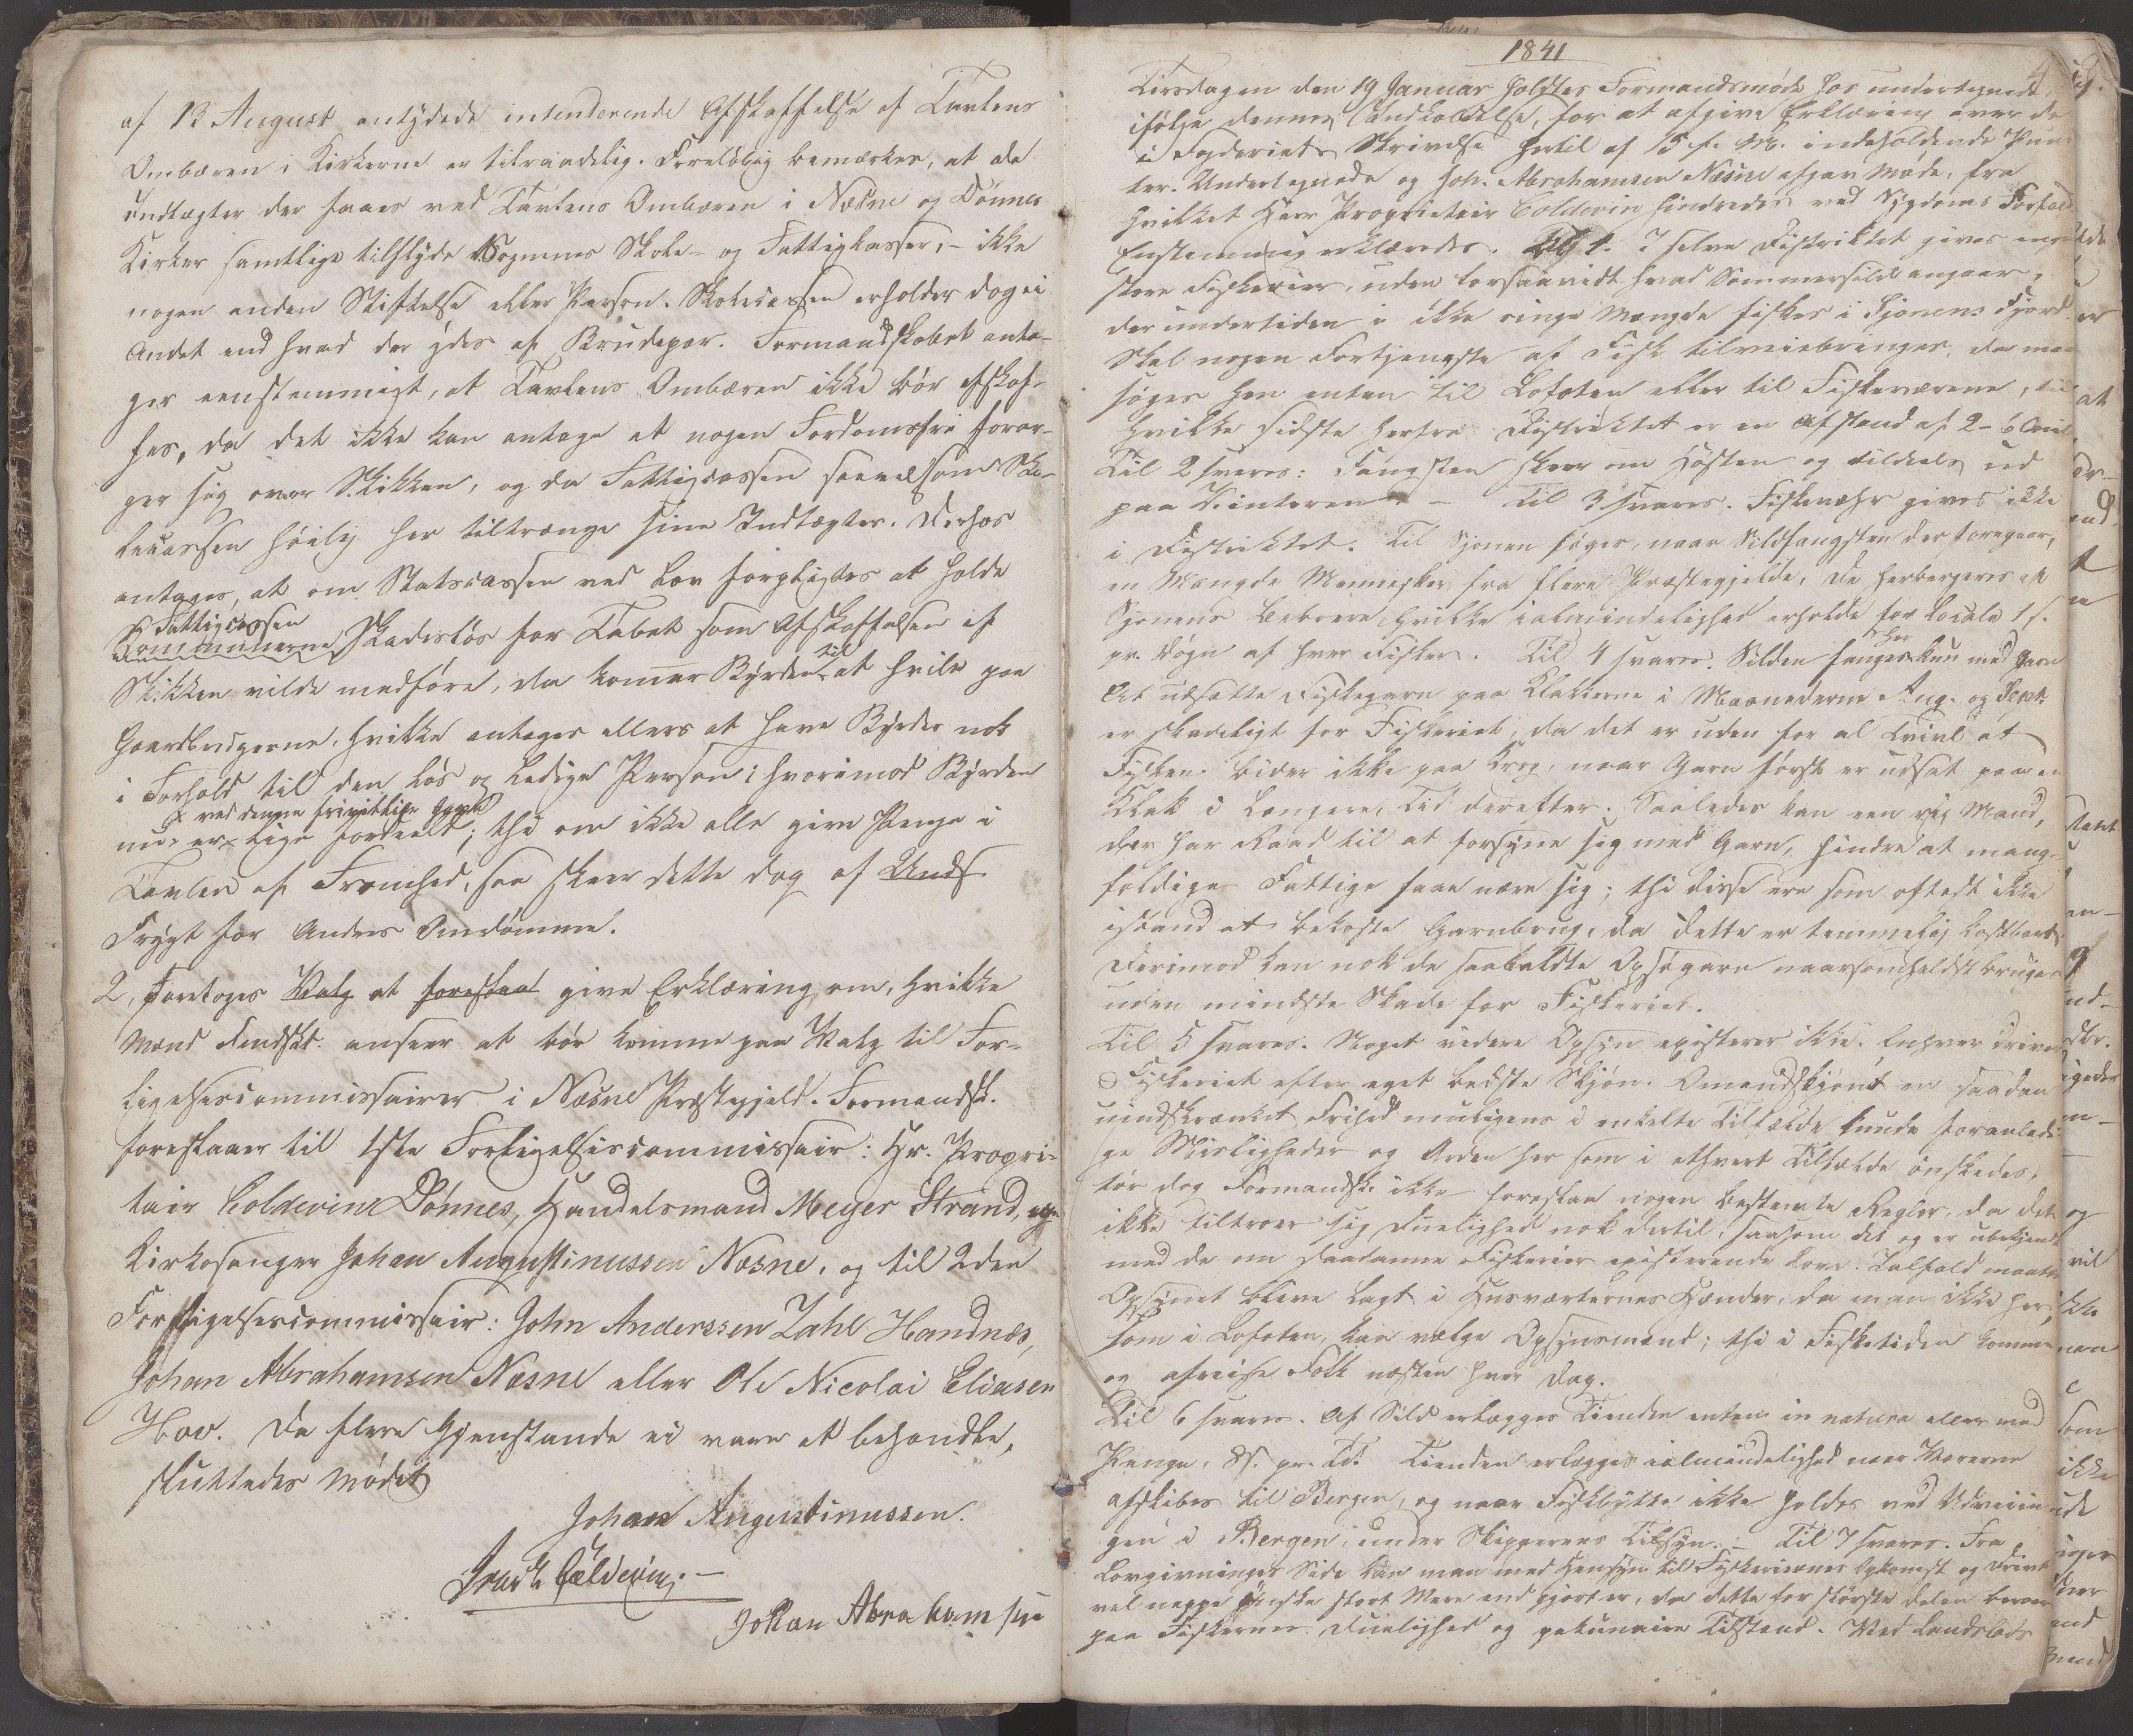 af 13 August antydede intenderende Afskaffelse af Tavlens
Ombæren i Kirkerne er tilraadelig. Foreløbig bemærkes, at de
Indtægter der faaes ved Tavlens Ombæren i Næsne og Dönnes
Kirker samtlige tilflyde Sognenes Skole- og Fattigkasser, - ikke
nogen anden Stiftelse eller Person. Skolecassen erholder dog ei
Andet end hvad der ydes af Brudepar. Formandskabet anta-
ger eenstemmigt, at Tavlens Ombæren ikke bör afskaf-
fes, da det ikke kan antage at nogen Fordomsfri forar-
ger sig over Skikken, og da Fattigcassen saavelsom Sko-
lecassen höilig her tiltrænge sine Indtægter. Derhos
antages, at om Statscassen ved Lov forpligtes at holde
Fattigcassen
Kommunerne skadeslös for Tabet som Afskaffelsen af
Skikken vilde medföre, da komer Byrden til at hvile paa
Gaardbrugerne, hvilke antages ellers at have Byrder nok
i Forhold til den lös og ledige Person; hvorimod Byrden
ved denne frivillige Gave
nu er lige fordeelt; thi om ikke alle give Penge i
Tavlen af Fromhed, saa skeer dette dog af Unds
Frygt for Andres Omdömme.
2, Foretoges Valg at foreslaa give Erklæring om, hvilke
Mænd Fmdskt. anseer at bör komme paa Valg til For-
ligelsescommissairer i Næsne Præstegjeld. Formandsk.
foreslaaer til 1ste Forligelsescommissair: Hr. Propri-
tair Coldevin Dönnes, Handelsmand Meyer Strand, og
Kirkesanger Johan Augustinussen Næsne, og til 2den
Forligelsescommissair: John Anderssen Zahl Handnæs,
Johan Abrahamsen Næsne eller Ole Nicolai Eliasen
Hov. Da flere Gjenstande ei vare at behandle,
sluttedes Mödet
Johan Augustinussen.
Isach Coldevin. -
Johan Abrahamsen
1841
4
Tirsdagen den 19 Januar holdtes Formandsmöde hos undertegnede
ifölge dennes Indkaldelse, for at afgive Erklæring over de
i Fogderiets Skrivelse hertil af 15 f. M. indeholdende Punc
ter. Undertegnede og Joh. Abrahamsen Næsne afgav Möde, fra
hvilket Herr Proprietair Coldevin hindredes ved Sygdoms Forfald.
Enstemmig erklæredes. Til 1. I selve Distriktet gives ingen
store Fiskerier, uden forsaavidt hvad Sommersild angaar,
der undertiden i ikke ringe Mængde fiskes i Sjonens Fjord.
Skal nogen Fortjeneste af Fisk tilveiebringes, da maa
söges hen enten til Lofoten eller til Fiskeværene, til
hvilke sidste herfra Distriktet er en Afstand af 2 - 6 Miil.
Til 2 svares: Fangsten skeer om Hösten og tildeels ud
paa Vinteren - Til 3 svares. Fiskevæhr gives ikke
i Distriktet. Til Sjonen söger, naar Sildfangsten der foregaar,
en Mængde Mennesker fra flere Præstegjelde, de herbergeres af
Sjonens Beboere, hvilke i almindelighed erholde for Locale 1 s.
pr. Dögn af hver Fisker. Til 4 svares. Silden fanges her kun med Garn
At udsætte Fiskegarn paa Klakkerne i Maanederne Aug. og Sept.
er skadeligt for Fiskeriet, da det er uden for al Tvivl at
Fisken bider ikke paa Krog, naar Garn först er udsat paa en
Klak i længere Tid derefter. Saaledes kan een rig Mand,
der har Raad til at forsyne sig med Garn, hindre at mang-
foldige Fattige faae nære sig; thi disse ere som oftest ikke
istand at bekoste Garnbrug, da dette er temmelig kostbart.
Derimod kan nok de saakaldte Opsögarn naarsomhelst bruges
uden mindste Skade for Fiskeriet.
Til 5 svares. Noget videre Opsyn existerer ikke. Enhver driver
Fiskeriet efter eget bedste Skjön. Omendskjönt en saadan
uindskrænket Frihed muligens i enkelte Tilfælde kunde foranledi-
ge Misligheder og Orden her som i ethvert Tilfælde önskedes,
tör dog Formandsk. ikke foreslaa nogen bestemte Regler, da det
ikke tiltroer sig Duelighed nok dertil, saasom det og er ubekjendt
med de om saadanne Fiskerier existerende Love. Ialfald maatte
Opsynet blive lagt i Husværternes Hænder, da man ikke her,
som i Lofoten, kan vælge Opsynsmænd; thi i Fisketiden komme
og afreise Folk næsten hver Dag.
Til 6 svares. Af Sild erlægges Tienden enten in natura eller med
Penge, 8 s. pr. Td. Tienden erlægges i almindelighed naar Varerne
afskibes til Bergen, og naar Fiskbytte ikke holdes ved Udveinin
gen i Bergen, under Skipperens Tilsyn. - Til 7 svares. Fra
Lovgivningens Side kan man med Hensyn til Fiskeriernes Opkomst og Drivt
vel neppe önske stort Mere end gjort er, da dette for störste Delen beroer
paa Fiskernes Duelighed og pekuniaire Tilstand. Med Landslods